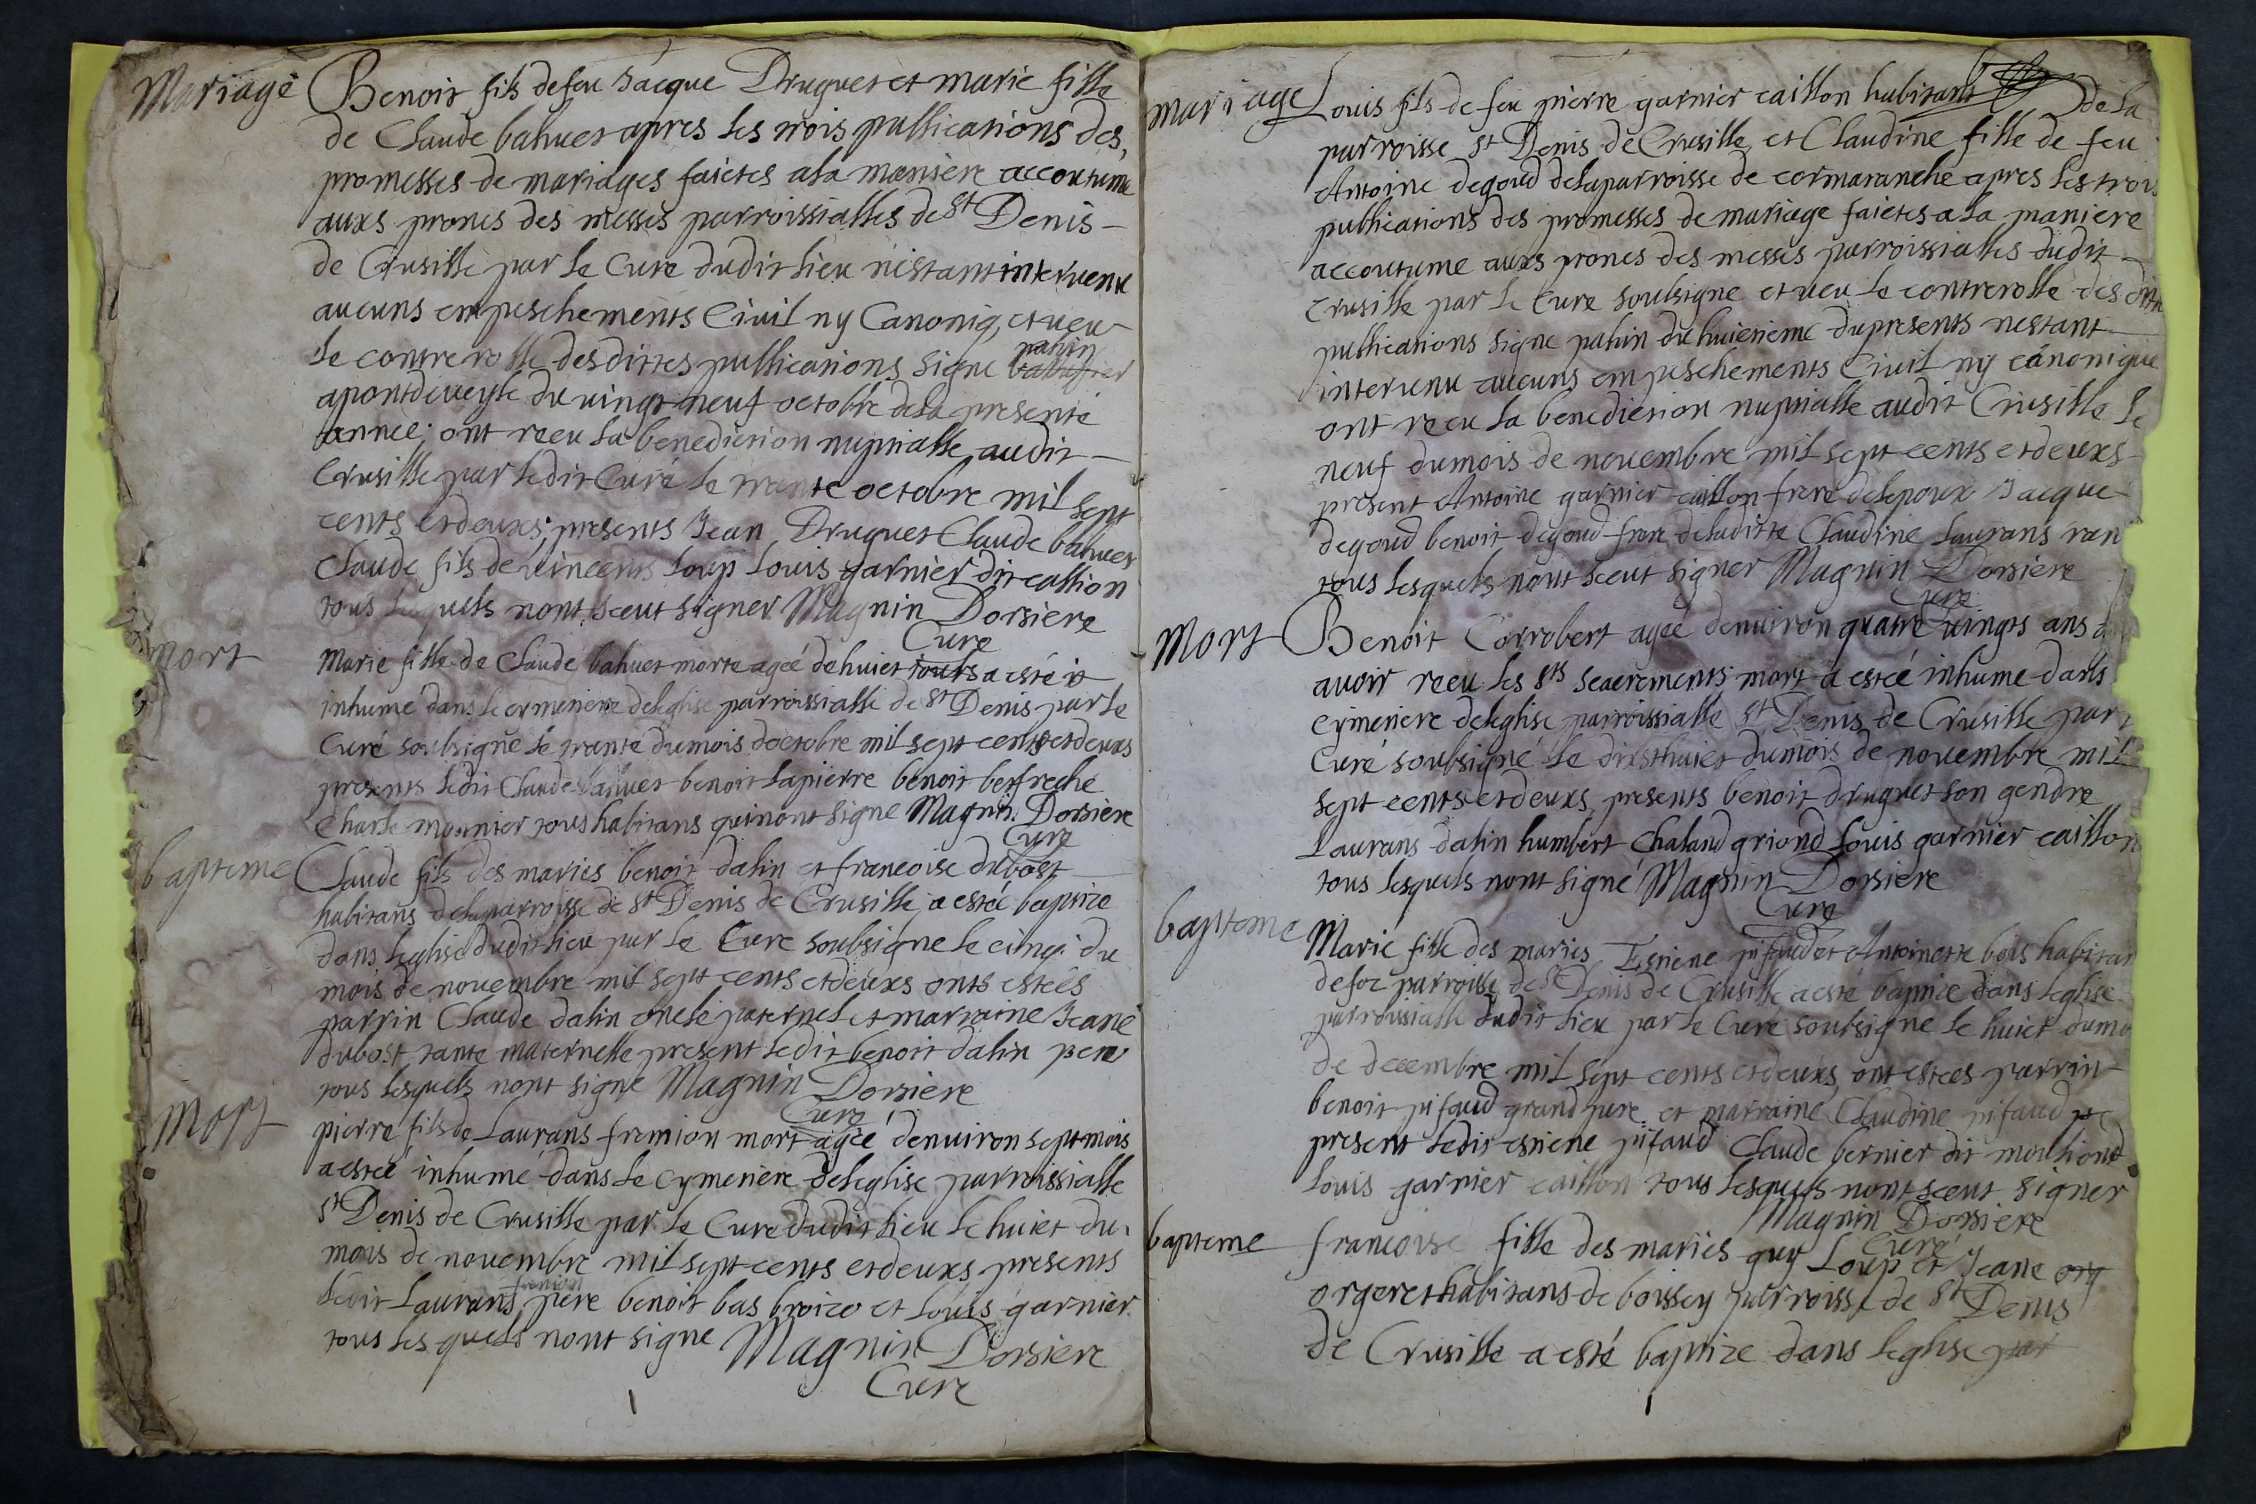 Mariage Benoit fils de feu Jacque Druguet et marie fille
de Claude bahuet apres les trois publications des
promesses de mariages faictes a la maniere accoutume
auxs prones des messes parroissialles de St Denis
de Crusille par le Cure dudit lieu n'estant intervenu
aucuns empeschements Civil ny Canoniq, et veu
le controrolle des dittes publications signe pahin
a pontdeveyle du vingt neuf octobre de la presente
annee; ont receu la benediction nuptialle audit
Crusille par ledit Curé le trante octobre mil sept
cents et deuxs; presents Jean Druguet Claude bahuet
Claude fils de vincents Loup Louis garnier dit callion
tous lesquels nont sceut signer Magnin Dorsiere
Cure
mort Marie fille de Claude bahuet morte ageé de huict jours a esté
inhumé dans le cymetiere de leglise parroissialle de St Denis par le
Curé soubsigné le trante du mois doctobre mil sept cents et deuxs
presents ledit Claude bahuet benoit lapierre benoit berfreche
Charle monnier tous habitans qui nont signe Magnin Dorsiere
Cure
bapteme Claude fils des maries benoit dalin et francoise dubost
habitans de la parroisse de St Denis de Crusille a esté baptize
dans leglise dudit lieu par le Cure soubsigne le cinq: du
mois de novembre mil sept cents et deuxs onts estéés
parrin Claude dalin oncle paternel et marraine Jeane
dubost tante maternelle present ledit benoit dalin pere
tous lesquels nont signe Magnin Dorsiere
Cure
Mort pierre fils de Laurans fremion mort ageé denviron sept mois
a esteé inhumé dans le cymetiere de leglise parroissialle
St Denis de Crusille par le Cure dudit lieu le huict du
mois de novembre mil sept cents et deuxs presents
fremion
ledit Laurans pere benoit bas broize et Louis garnier
tous lesquels nont signe Magnin Dorsiere
Cure
mariage Louis fils de feu pierre garnier caillon habitant de la
parroisse St Denis de Crusille et Claudine fille de feu
Antoine degoud de la parroisse de cormaranche apres les trois
publications des promesses de mariage faictes a la maniere
accoutume auxs prones des messes parroissialles dudit
Crusille par le Cure soubsigne et veu le controrolle des dittes
publications signe pahin du huictieme du presents nestant
intervenu aucuns empeschements Civil ny canonique
ont receu la benediction nuptialle audit Crusille le
neuf du mois de novembre mil sept cents et deuxs
present Antoine garnier caillon frere de lepoux Jacque
degoud benoit degoud frere de laditte Claudine Laurans ran
tous lesquels nont sceut signer Magnin Dorsiere
Cure
Mort Benoit Corrobert ageé denviron quatre vingts ans
avoir receu les sts sacrements mort a esteé inhume dans
cymetiere de leglise parroissialle St Denis de Crusille par
Curé soubsigné le dixs huict du mois de novembre mil
sept cents et deuxs presents benoit druguet son gendre
Laurans dalin humbert Chaland griond Louis garnier caillon
tous lesquels nont signé Magnin Dorsiere
Cure
bapteme Marie fille des maries Estiene pifaud et Antoinette bois habitan
parroisse de St Denis de Crusille a esté baptize dans leglise
parroissialle dudit lieu par le Curé soubsigne le huict du mo
de decembre mil sept cents et deuxs ont estees parrin
benoit pifaud grand pere et marraine Claudine pifaud
present ledit estiene pifaud Claude bernier dit moulliond
Louis garnier caillon tous lesquels nont sceut signer
Magnin Dorsiere
Curé
bapteme francoise fille des mariés guy Loup et Jeane
orgeret habitans de boissey parroisse de St Denis
de Crusille a esté baptize dans leglise par